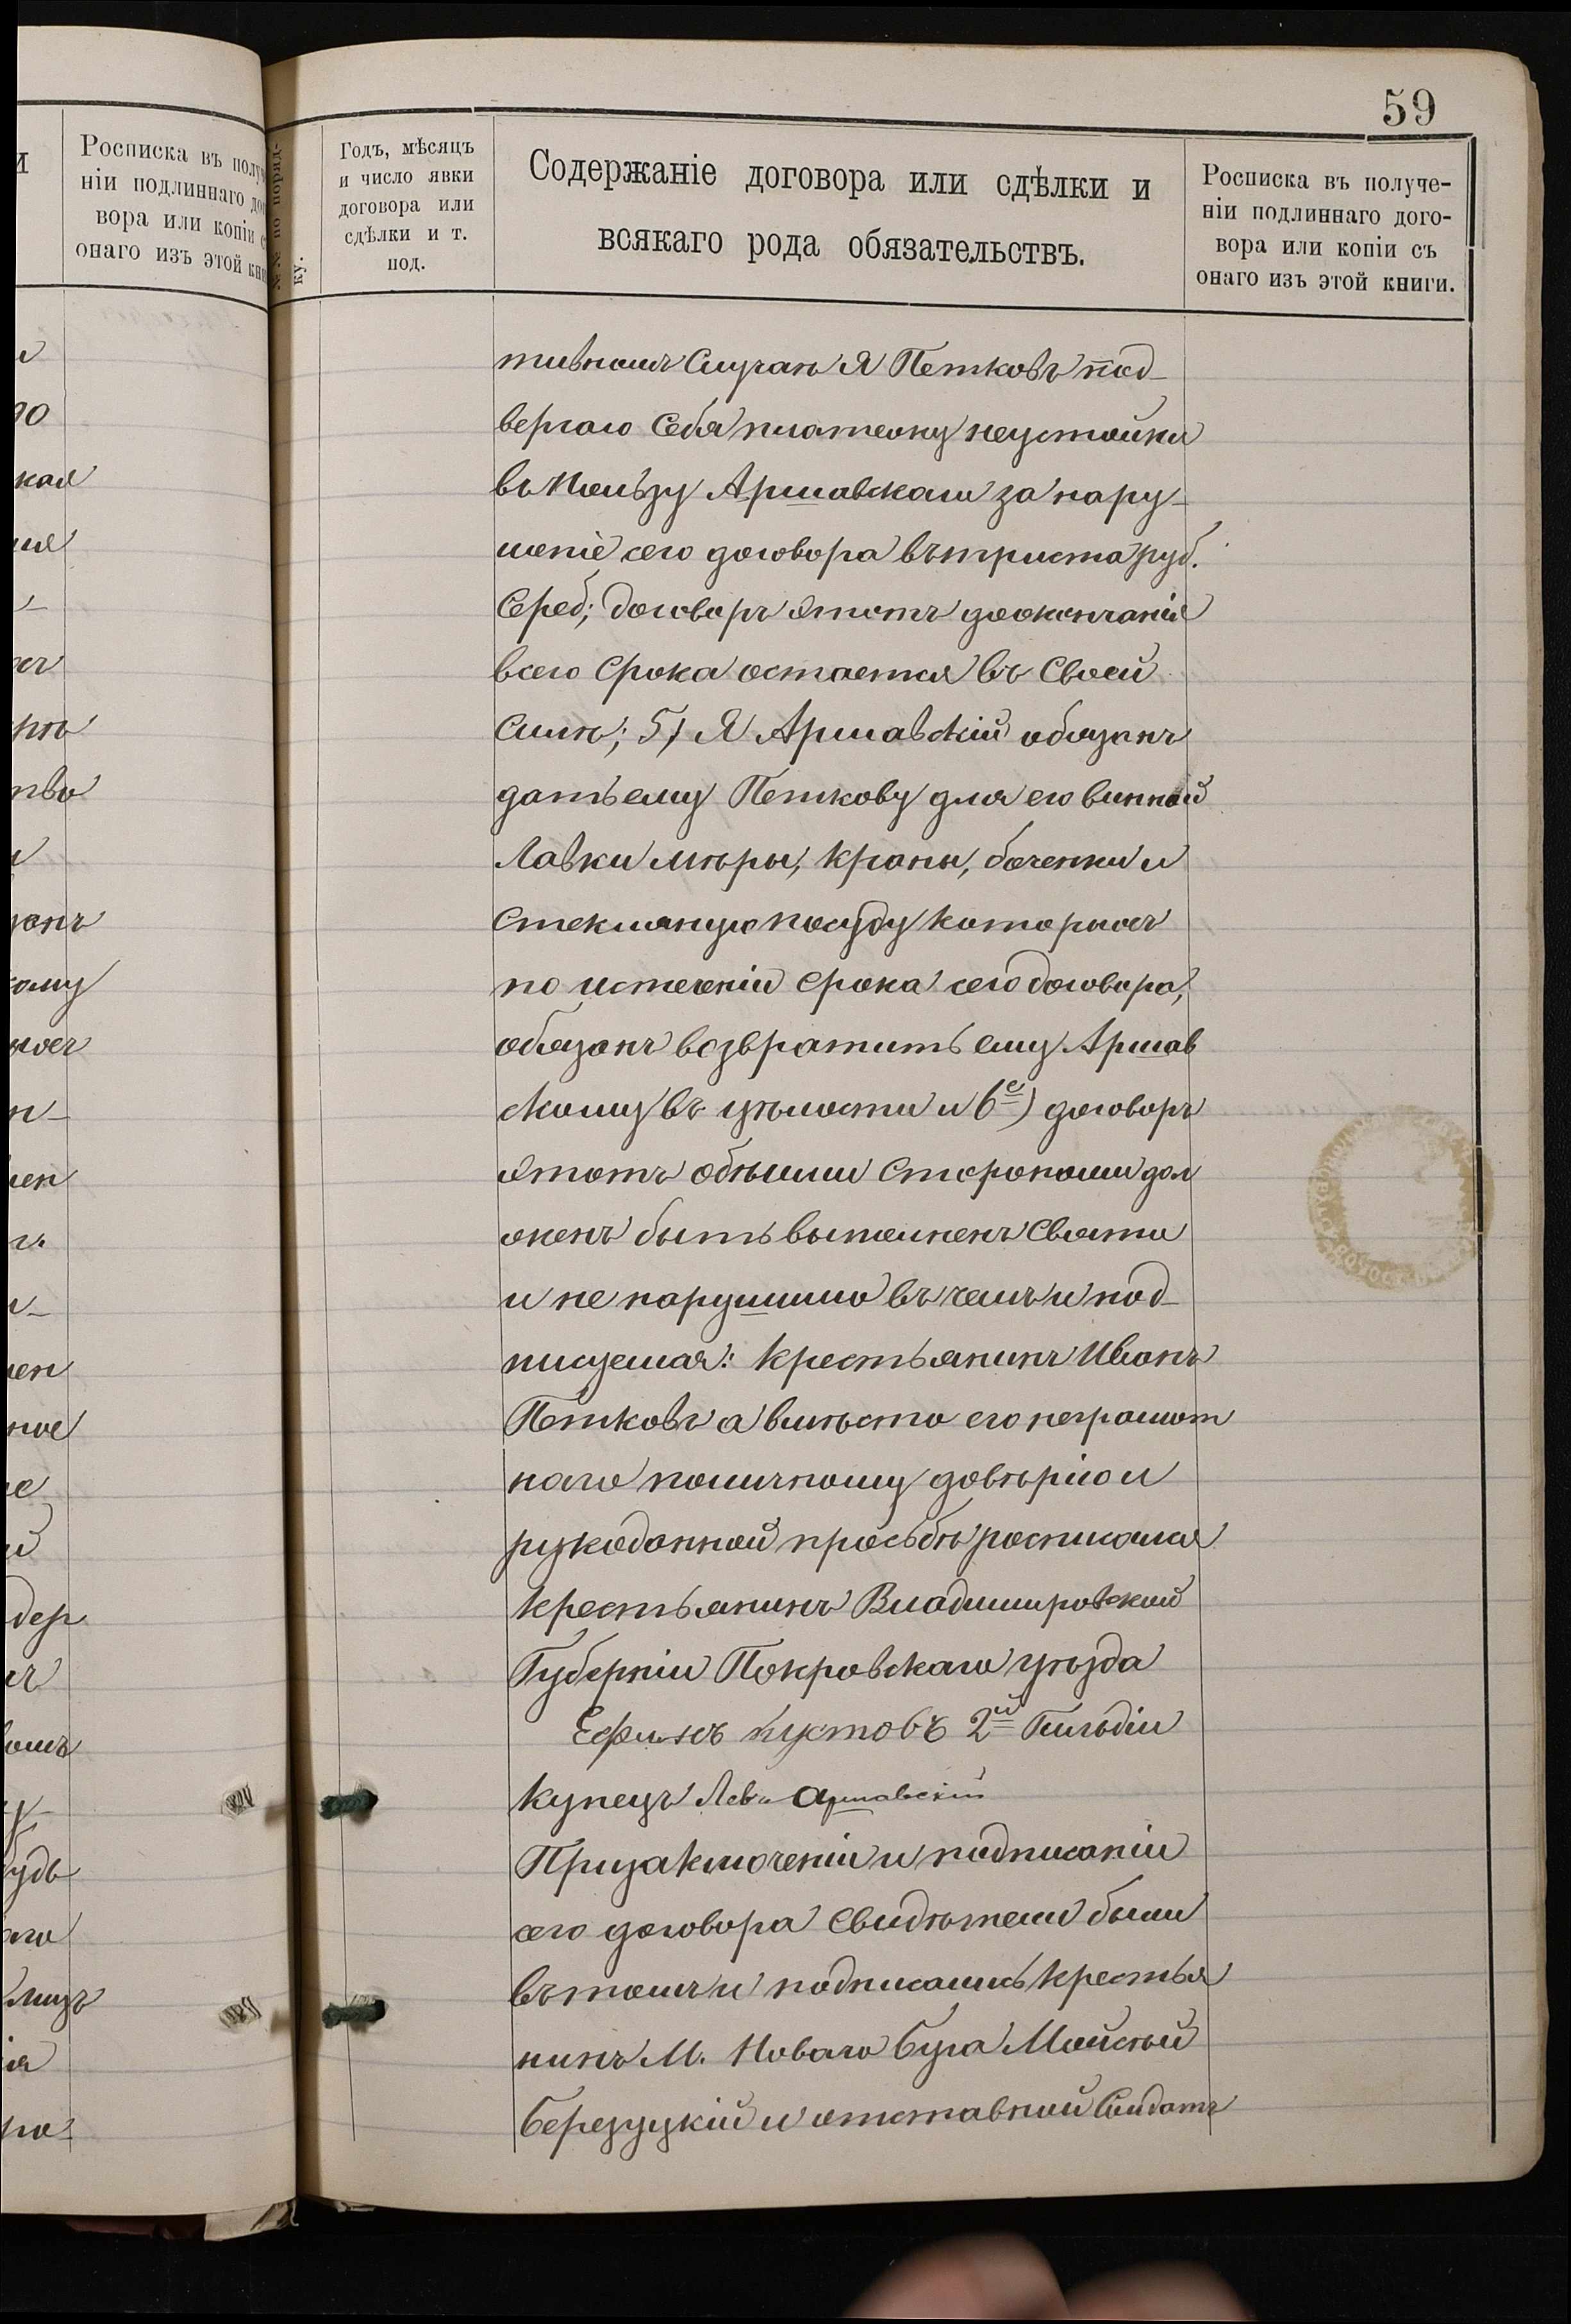 59
Росписка въ
ніи подлиннаго
вора или копіи
онаго изъ этой
Годъ, мѣсяцъ
и число явки
договора или
сдѣлки и т.
под.
Содержаніе договора или сдѣлки и
всякаго рода обязательствъ.
Росписка въ получе-
ніи подлиннаго дого-
вора или копіи съ
онаго изъ этой книги.
тивномъ случаѣ я Петковъ под-
вергаю себя платежу неустойки
въ пользу Аршавскаго за нару-
шеніе сего договора въ триста руб.
Сереб; договоръ этотъ до окончанія
всего срока остается въ своей
силѣ; 5) Я Аршавскій обязанъ
дать ему Петкову для его винной
Лавки мѣры, краны, боченки и
стекляную посуду которыхъ
по истеченіи срока сего договора,
обязанъ возвратить ему Аршав
скому въ цѣлости и 6е) договоръ
этотъ обѣими сторонами дол
женъ быть выполненъ свято
и не нарушимо въ чемъ и под-
писуемся: Крестьянинъ Иванъ
Петковъ а вмѣсто его неграмот
наго по личному довѣрію и
рукоданной просьбѣ росписался
крестьянинъ Владимировской
Губерніи Покровскаго уѣзда
Ефимъ Кустовъ 2й Гильдіи
Купецъ Лев. Аршавскій
При заключеніи и подписаніи
сего договора свидѣтели были
въ томъ и подписались крестья
нинъ М. Новаго Буга Мойсѣй
Березуцкій и отставной Солдатъ